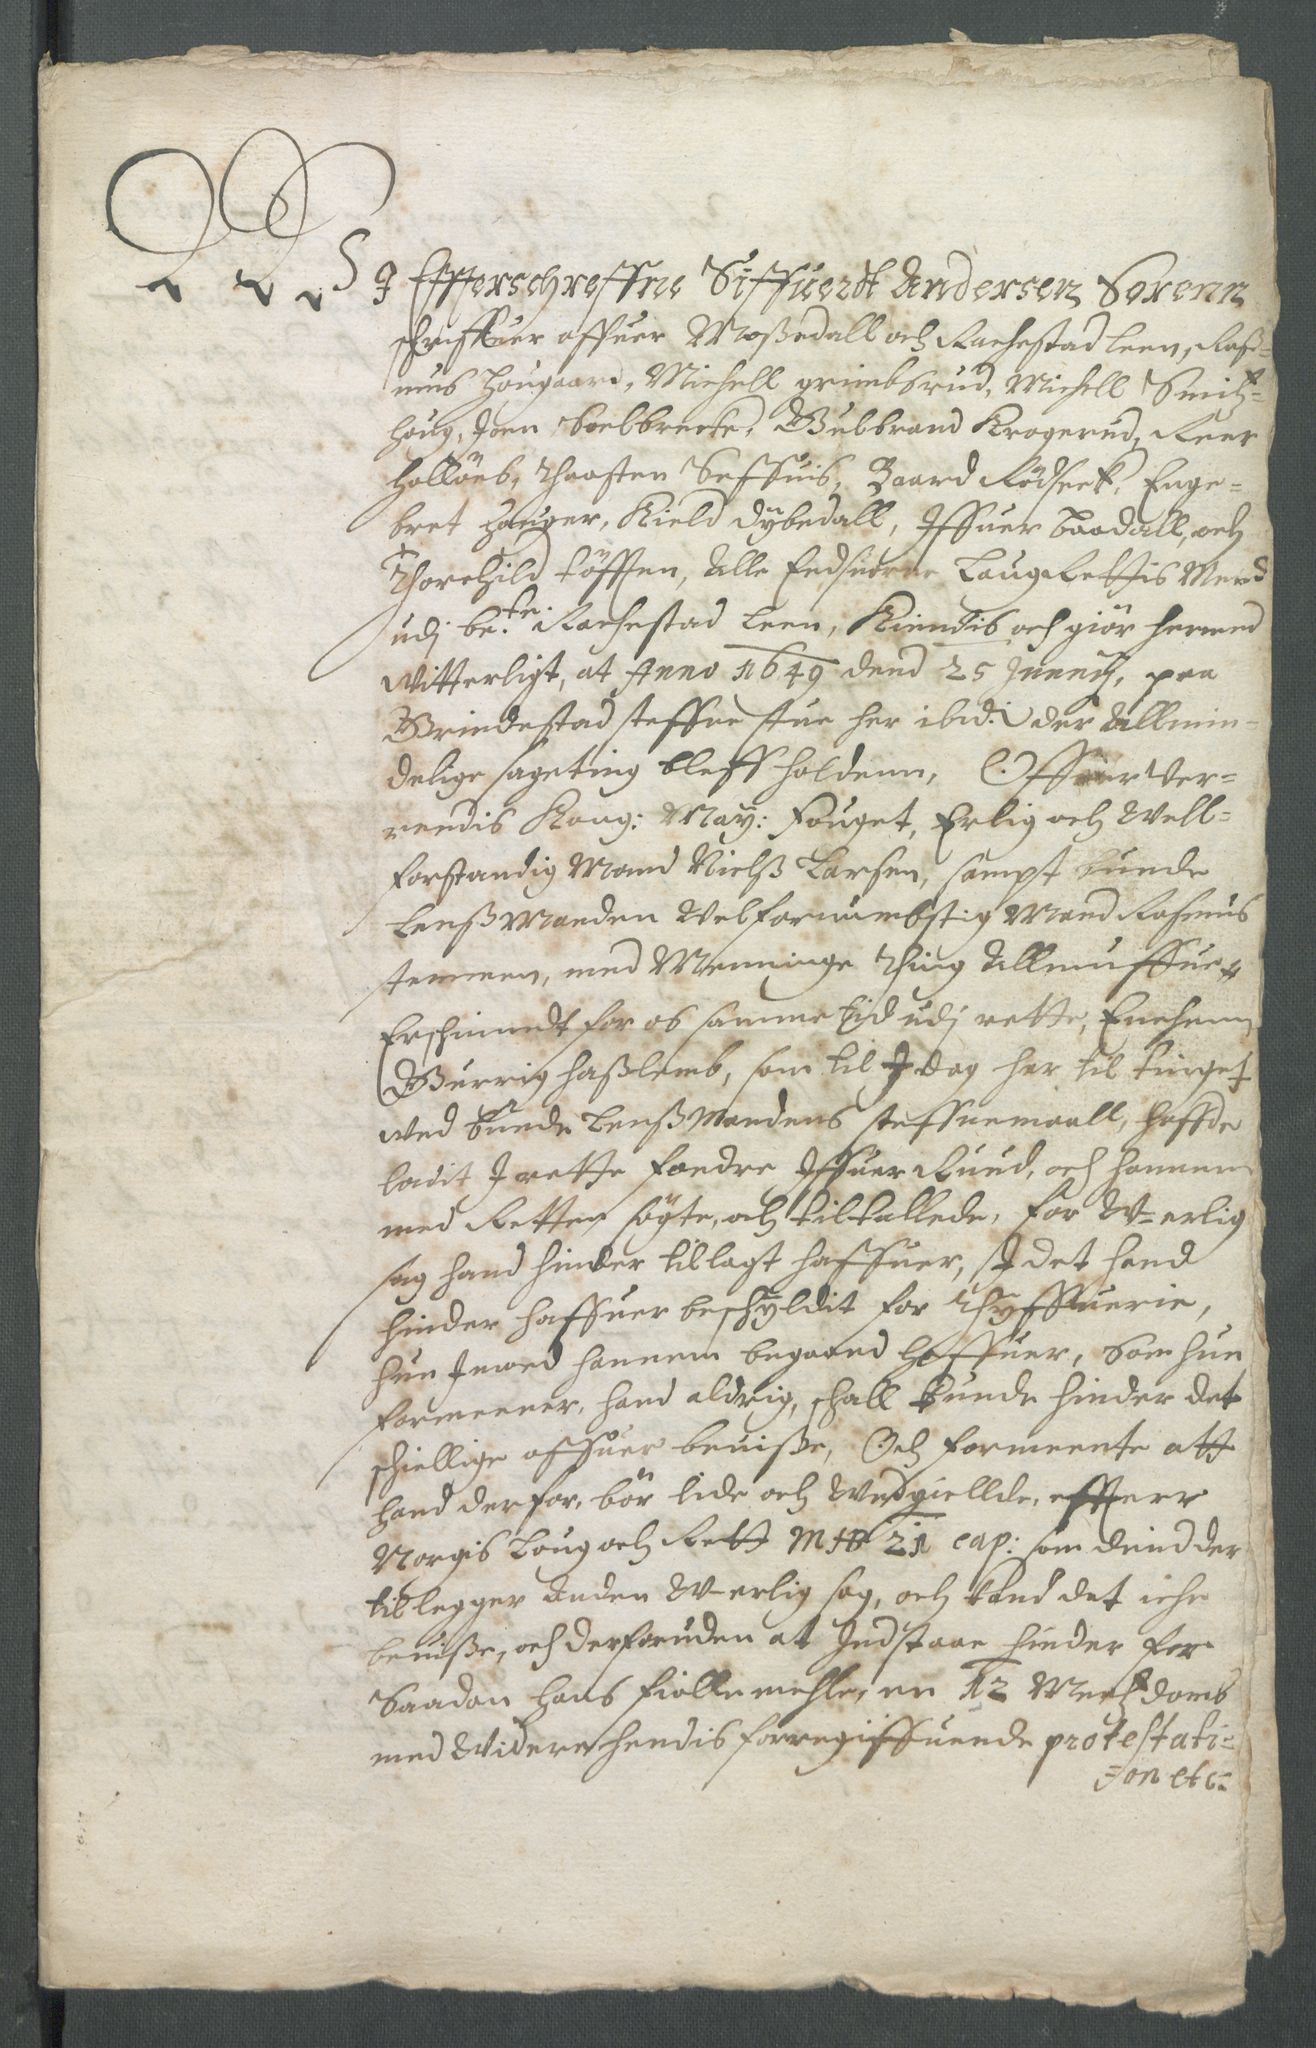 Wj Effterschreffne Siffuerdt Andersen Sorenn
schriffuer offuer Moßedall och Rachestad leen, Raß=
mus Hougaard, Michell grimbsrud, Michell Smitz=
houg, Joen Boelbrecke, Gulbrand Krogerud, Reer
Holløes, Thaasten Seffuis, Baard Rødseet, Enge=
bret Houger, Kield Dybedall, Iffuer Taadall, och
Thorchild Tøfften, Alle Eedsuorne Laug Rettis Mend
udj be:te Rachestad leen, Kiendis och giør hermed
witterligt, at Anno 1649 dend 25 Junij, paa
Grindestad steffne stue her ibid: der Allmin=
delige sageting bleff holdenn, Offuer Ver=
rendis Kong: May: Fouget, Erlig och Vell=
forstandig Mand Nielß Larsen, sampt bunde
Lenß Manden Velfornumbstig Mand Rasmus
temmen, med Menninge Thing Allmuffue,
Erschinndt for os samme tid udj rette, Enchenn
Gurrig Haßlemb, som til J dag her til tinget
wed bunde Lenß Mandens steffnemaall, haffde
ladit J rette fordre Iffuer Ruud, och hannem
med Retten søgte, och tiltallede, for W-erlig
sag hand hinder tillagt haffuer, J det hand
hinder haffuer beschyldit for Thyffuerie,
hun Jmod hannem begaaed haffuer, Som hun
formeener, hand aldrig, schall kunde hinder det
schiellige offuer beuiße, Och formeente att
hand derfor, bør lide och Vndgiellde, effterr
Norgis Loug och Rett MB 21 cap: som dend der
tillegger Anden W-erlig sag, och kand det iche
beuiße, och derforuden at Indstaae hinder for
Saadan hans fiolle mehle, en 12 Mendz domb
med Videre hendis forregiffuende protestati=
=on etc: